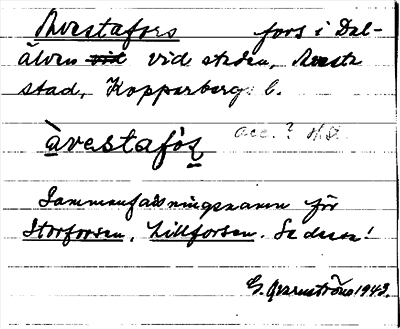 Avestafors fors i Dal-
älven vid vid staden, Avesta
stad, Kopparbergs l.
àvestafòʂ acc. ?
Sammanfattningsnamn för
Storforsen, Lillforsen. Se dessa!
G. Qvarnström 1943.